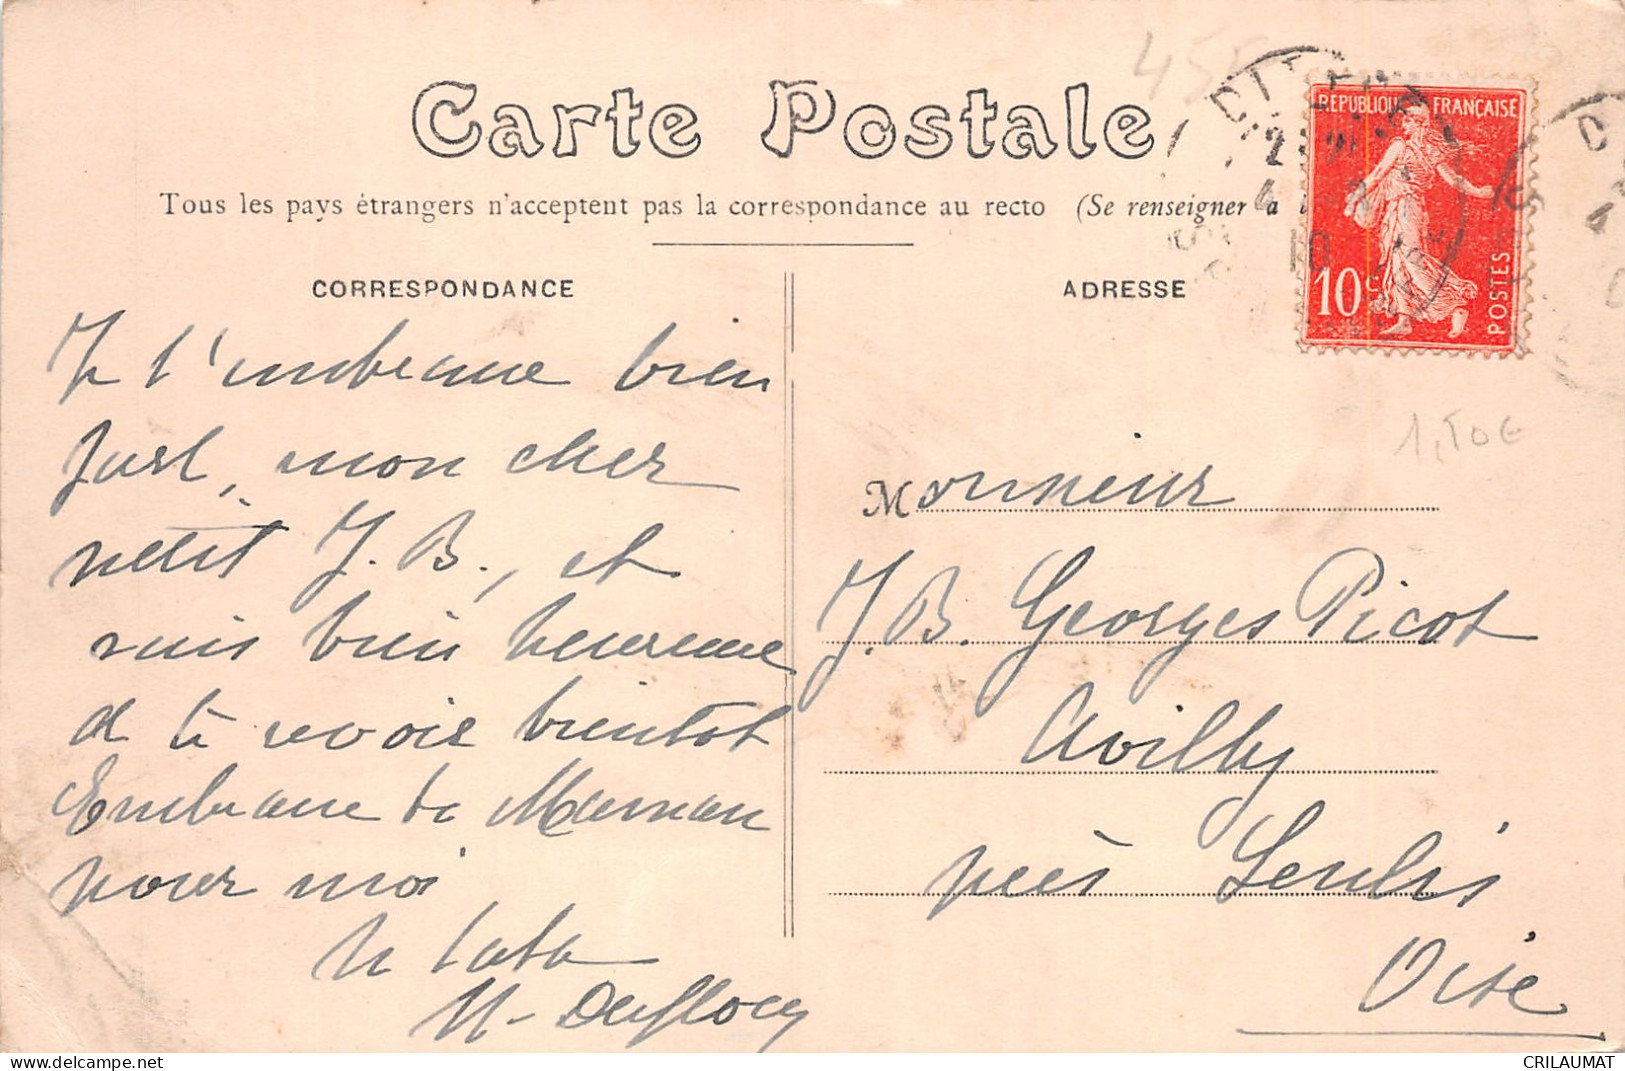 Carte Postale
Tous les pays étrangers n'acceptent pas la correspondance au recto (Se renseigner à
RÉPUBLIQUE FRANÇAISE
10 c.
POSTES
10
CORRESPONDANCE
ADRESSE
Je t'embrasse bien
fort, mon cher
petit J. B., et
suis bien heureuse
de te revoir bientôt
Embrasse ta Maman
pour moi
Ta tata
M. Duflocq
Monsieur
J. B. Georges Picot
Avilly
près Senlis
Oise
1,50€
CRILAUMAT